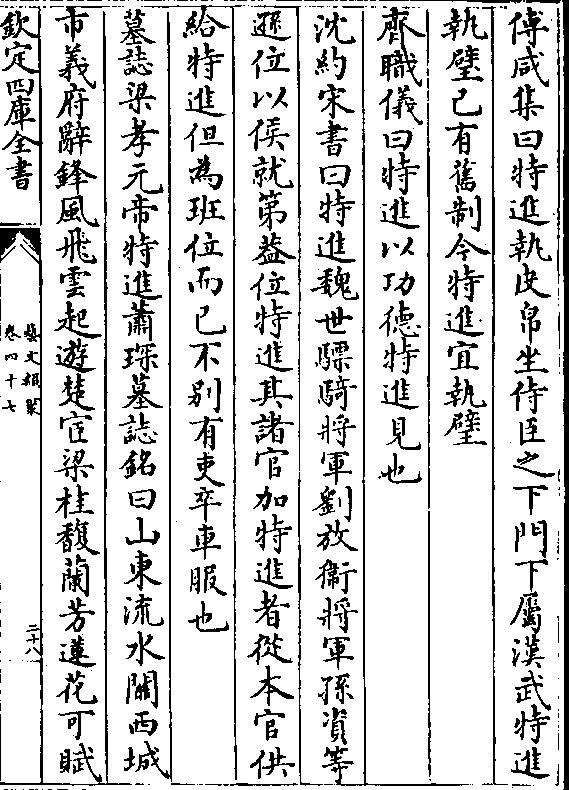 傅咸集曰特進執皮帛坐侍臣之下門下屬漢武特進
執璧已有舊制今特進宜執璧
齊職儀曰特進以功德特進見也
沈約宋書曰特進魏世驃騎將軍劉放衞將軍孫資等
遜位以侯就第益位特進其諸官加特進者從本官供
給特進但為班位而已不別有吏卒車服也
墓誌梁孝元帝特進蕭琛墓誌銘曰山東流水關西城
市義府辭鋒風飛雲起遊楚宦梁桂馥蘭芳蓮花可賦
欽定四庫全書
藝文類聚
卷四十七
二十八